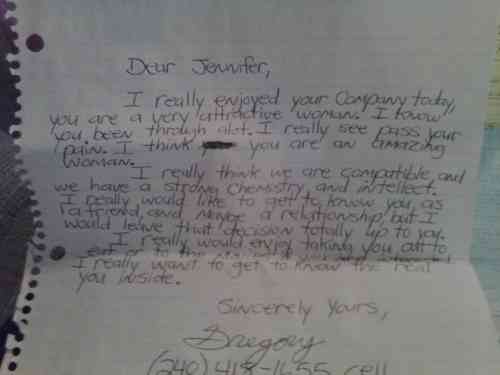 Dear Jennifer,
I really enjoyed your Company today,
you are a very attractive woman. I know
you been through alot. I really see pass your
pain. I think you are an amazing
woman.
I really think we are compatible, and
we have a strong chemistry, and intellect.
I really would like to get to know you, as
a friend, and maybe a relationship, but I
would leave that decision totally up to you.
I really would enjoy taking you out to
eat or to the
I really want to get to know the real
you inside.
Sincerely Yours,
Gregory
(240) 418-1655 cell